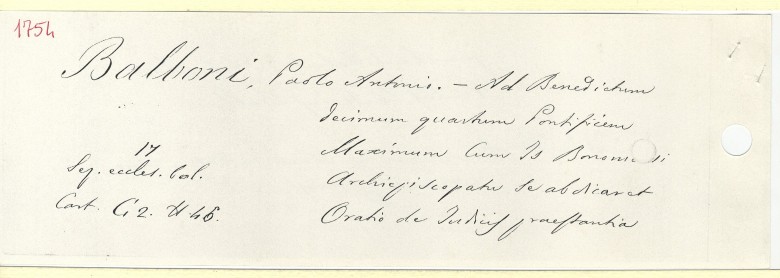 1754
Balboni, Paolo Antonio. - Ad Benedictum
decimum quartum Pontificem
Maximum Cum Is Bononiensi
Archiepiscopatu se abdicaret
Oratio de Iudicij praestantia
17
Sez. eccles. bol.
Cart. G 2. N 48.